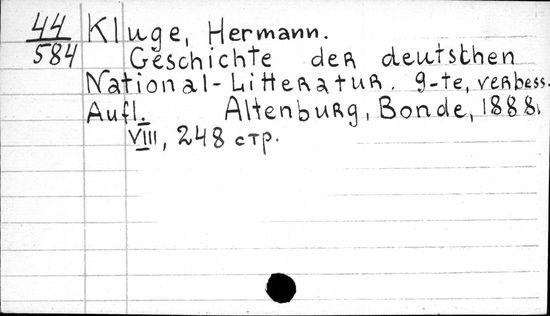 44 Kluge, Hermann.
584 Geschichte der deutschen
National-Litteratur. 9-te, verbess.
Aufl. Altenburg, Bonde, 1888.
VIII, 248 стр.